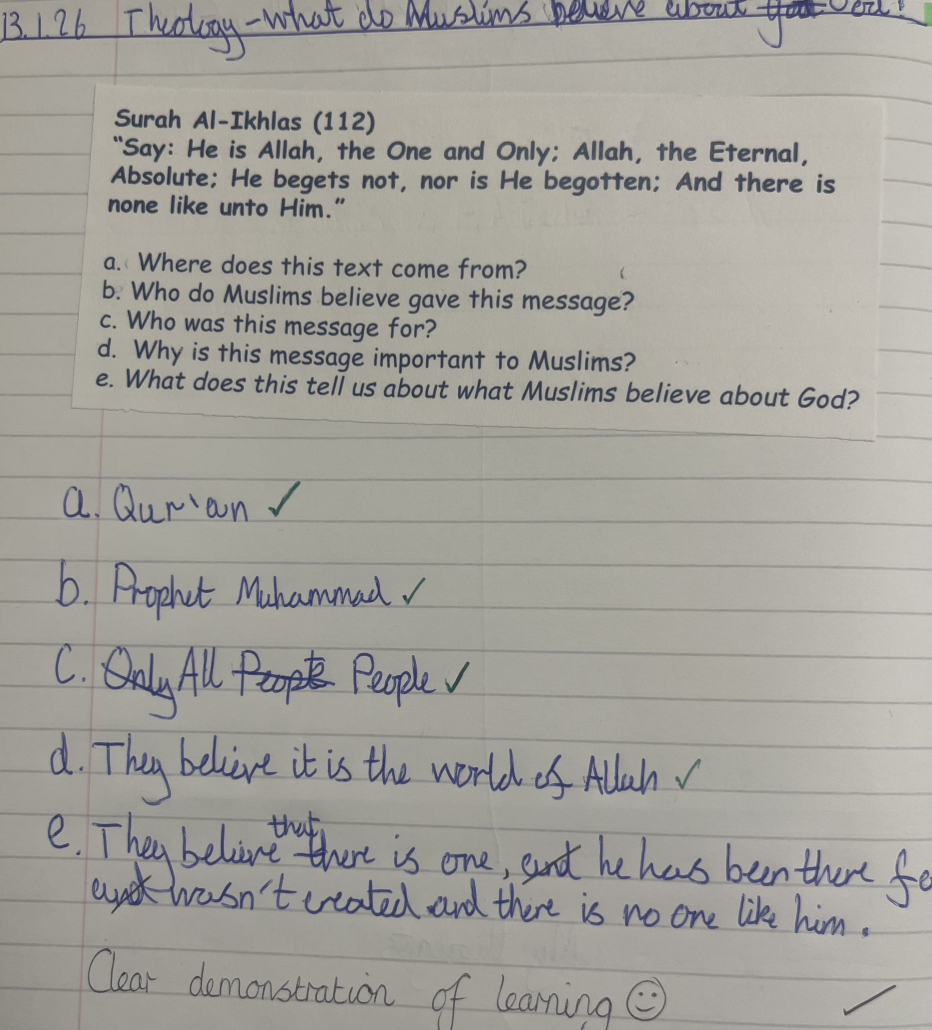 13.1.26 Theology-What do Muslims believe about God?
Surah Al-Ikhlas (112)
"Say: He is Allah, the One and Only; Allah, the Eternal,
Absolute; He begets not, nor is He begotten; And there is
none like unto Him."
a. Where does this text come from?
b. Who do Muslims believe gave this message?
c. Who was this message for?
d. Why is this message important to Muslims?
e. What does this tell us about what Muslims believe about God?
a. Qur'an ✓
b. Prophet Muhammad ✓
C. Only All People ✓
d. They believe it is the world of Allah ✓
e. They believe that there is one, and he has been there
and wasn't created and there is no one like him.
Clear demonstration of learning ☺